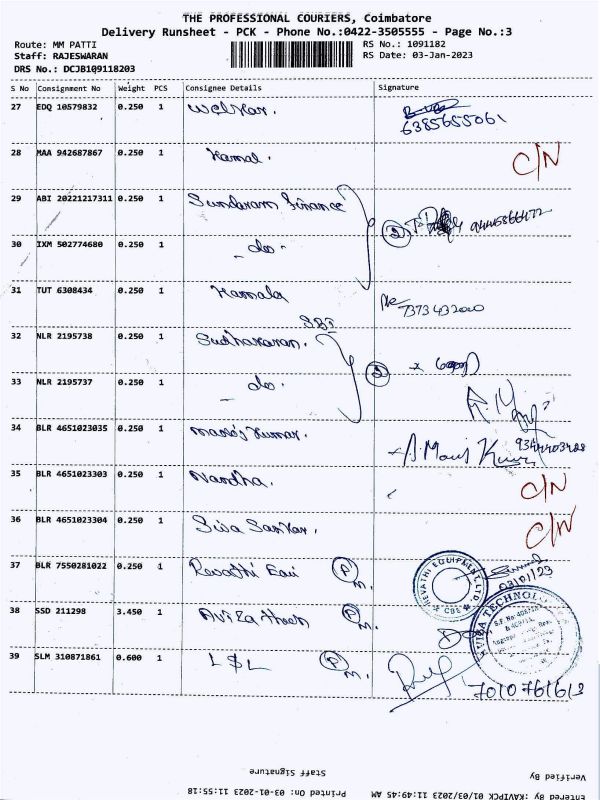 THE PROFESSIONAL COURIERS, Coimbatore
Delivery Runsheet - PCK - Phone No.:0422-3505555 - Page No.:3
Route: MM PATTI RS No.: 1091182
Staff: RAJESWARAN RS Date: 03-Jan-2023
DRS No.: DCJB109118203
S No Consignment No Weight PCS Consignee Details Signature
27 EDQ 10579832 0.250 1
6385655061
28 MAA 942687867 0.250 1 Kamal. C/N
29 ABI 20221217311 0.250 1 Sundaram Finance
2
30 IXM 502774680 0.250 1 - do -
31 TUT 6308434 0.250 1 Kamala
7373432000
SBI
32 NLR 2195738 0.250 1 Sudhakaran.
2
33 NLR 2195737 0.250 1 - do.
34 BLR 4651023035 0.250 1 Manoj Kumar.
9344403428
35 BLR 4651023303 0.250 1 Nandha. C/N
36 BLR 4651023304 0.250 1 Siva Sankar. C/N
37 BLR 7550281022 0.250 1 Revathi Equi P M.
REVATHI EQUIPMENT LTD. CBE
03/01/23
38 SSD 211298 3.450 1 Aviza Tech P M.
39 SLM 310871861 0.600 1 L $ L P M.
7010761613
Staff Signature Verified By
Printed On: 03-01-2023 11:55:18 Entered By :KAVIPCK 01/03/2023 11:49:45 AM